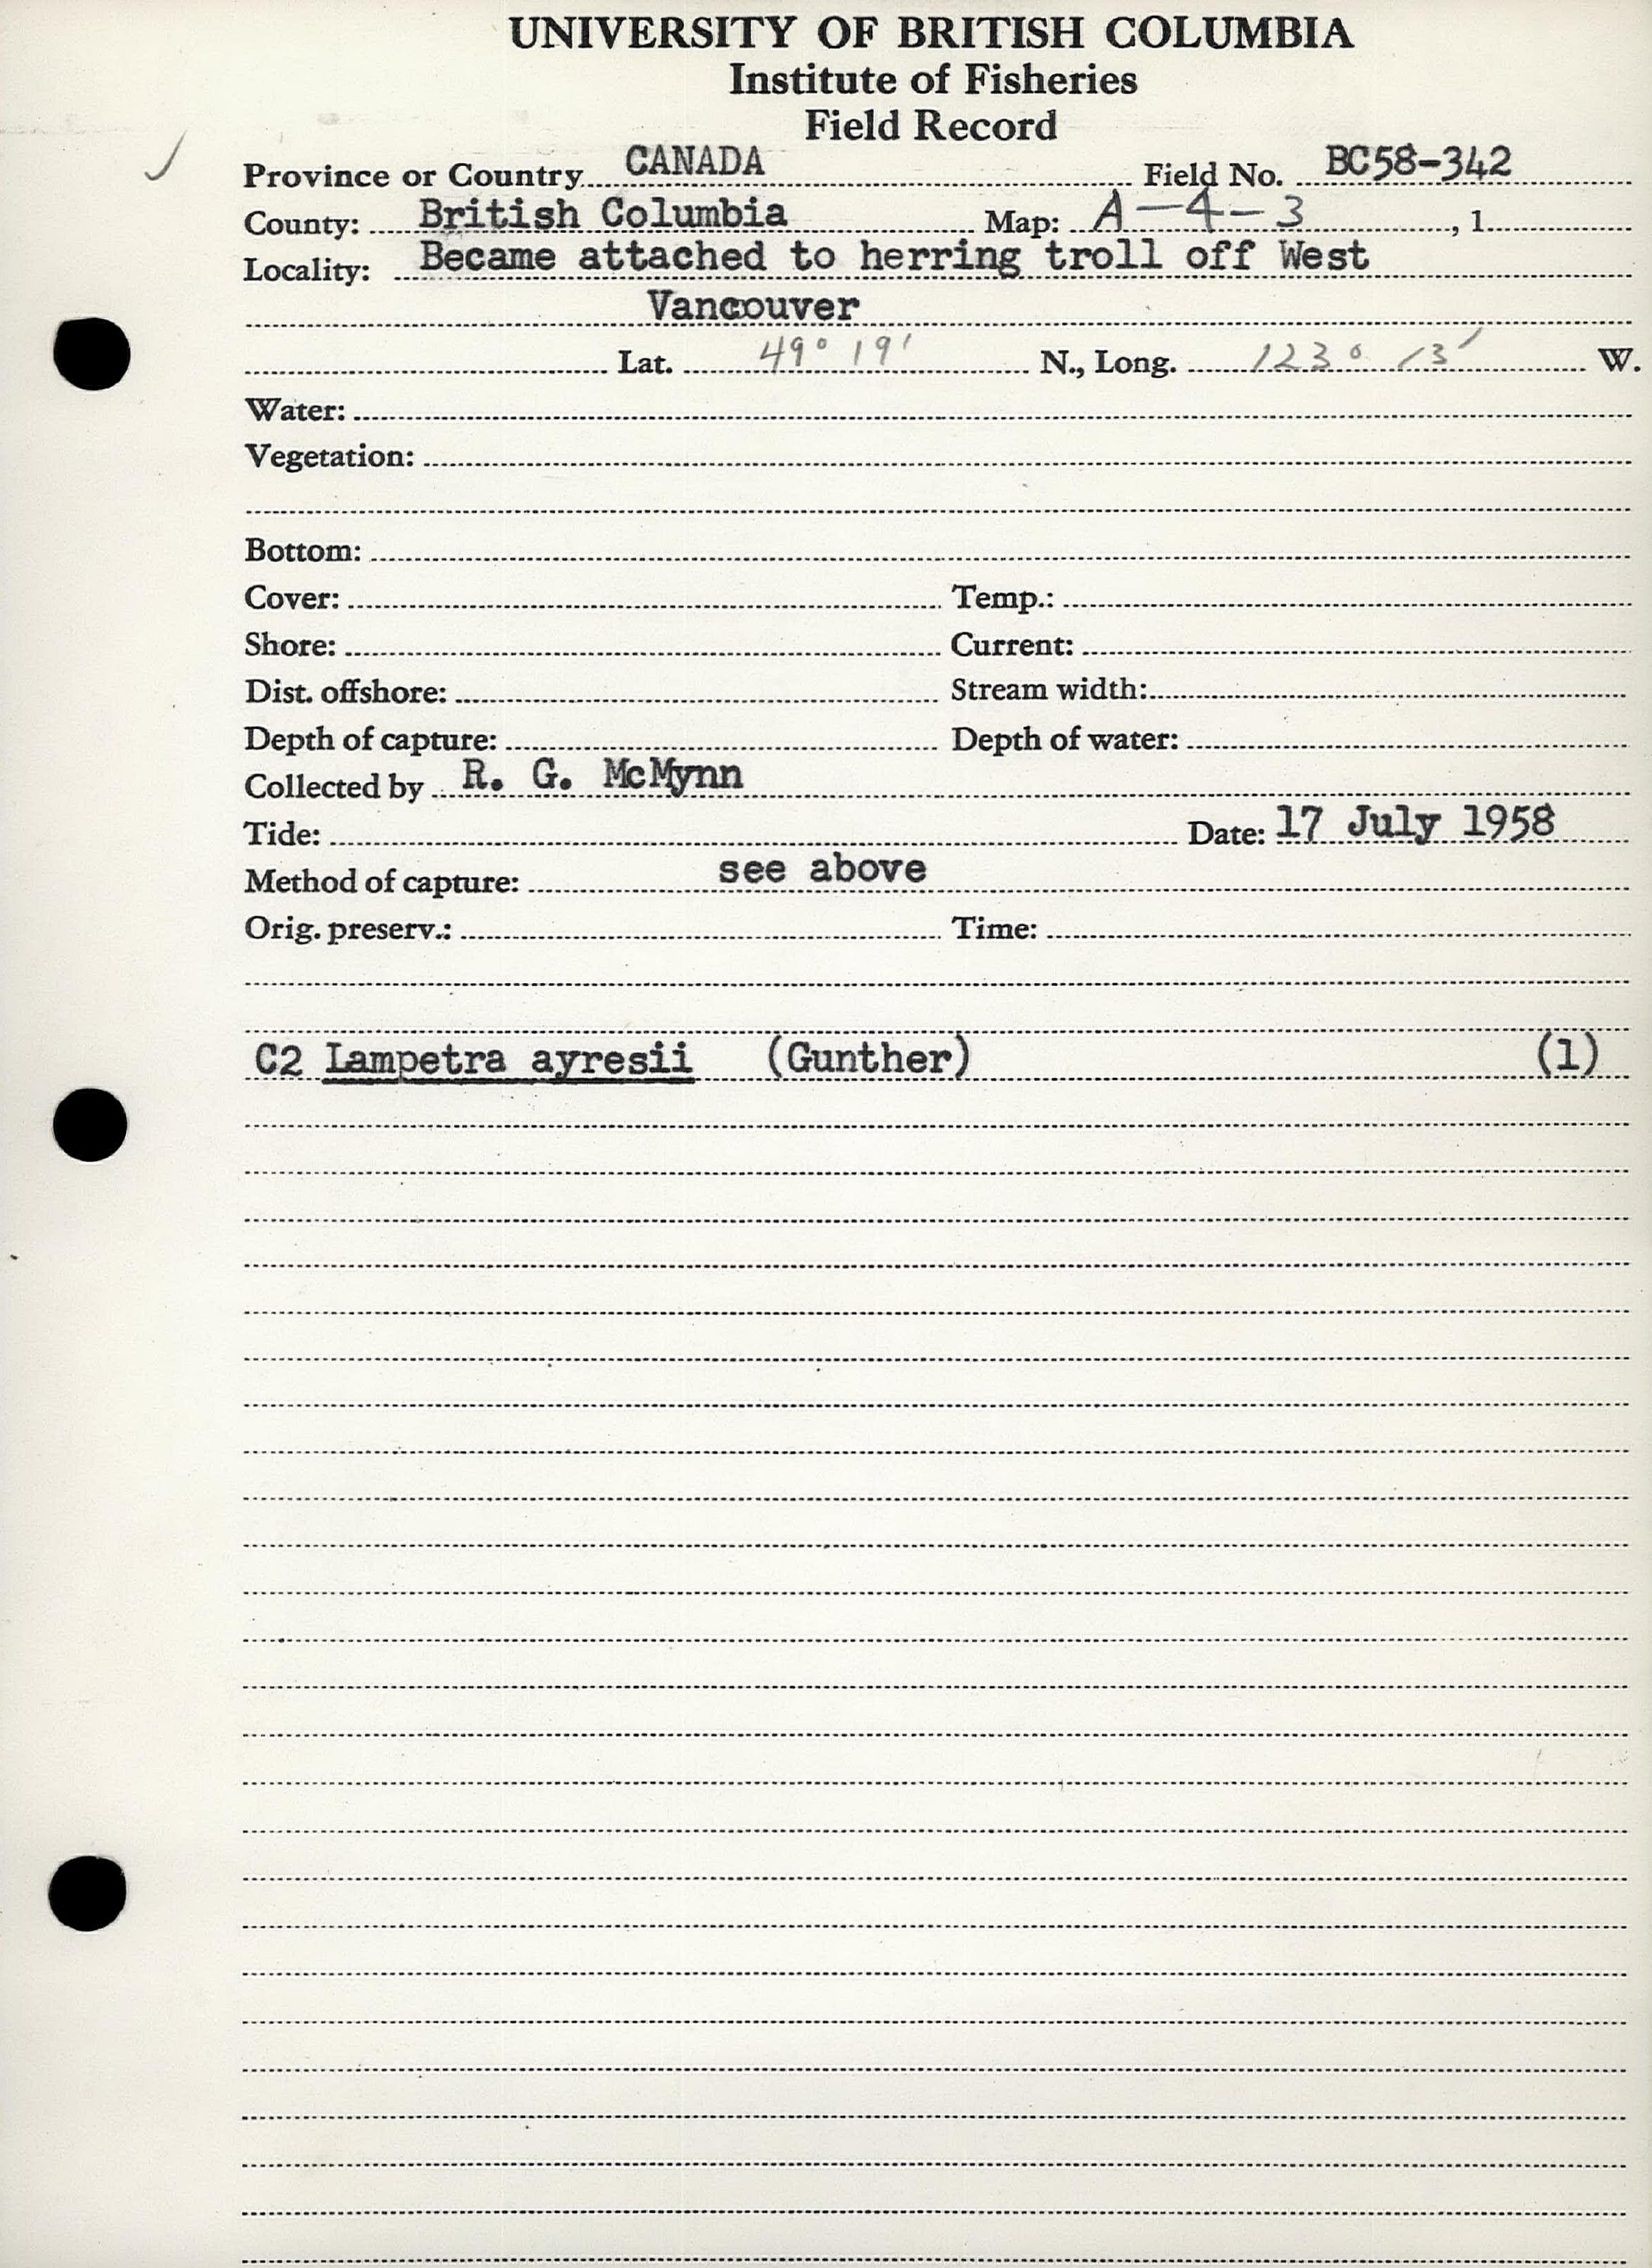 UNIVERSITY OF BRITISH COLUMBIA
Institute of Fisheries
Field Record
Province or Country CANADA Field No. BC58-342
County: British Columbia Map: A-4-3, 1
Locality: Became attached to herring troll off West
Vancouver
Lat. 49° 19' N., Long. 123° 13' W.
Water:
Vegetation:
Bottom:
Cover: Temp.:
Shore: Current:
Dist. offshore: Stream width:
Depth of capture: Depth of water:
Collected by R. G. McMynn
Tide: Date: 17 July 1958
Method of capture: see above
Orig. preserv.: Time:
C2 Lampetra ayresii (Gunther) (1)